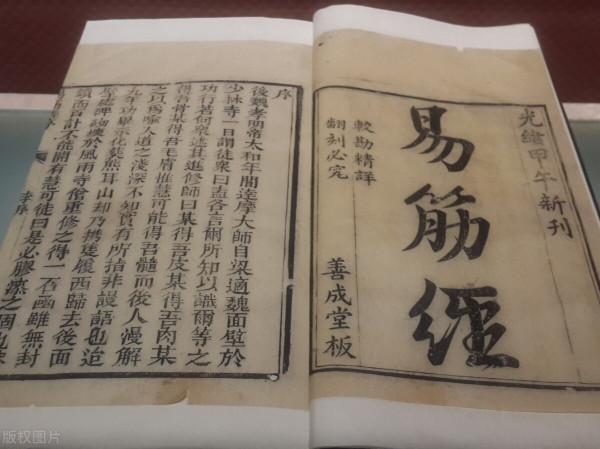 光緒甲午新刊
易筋經
較勘精詳
翻刻必究
善成堂板
序
後魏孝明帝太和年間達摩大師自梁適魏面壁於
少林寺一日謂徒衆曰盍各言爾所知以識爾等之
功行若何衆述其進修師曰某得吾皮某得吾肉某
得吾骨某得吾毛膚惟慧可能得吾髓而後人漫解
之以爲喻人道之淺深不知實有所指非謾語也迨
九年功畢示化葬熊耳山却乃携隻履西歸去後面
壁處碑砌壞於風雨寺僧重修之得一石函雖無封
鎖而百計不能開有慧可徒曰是必膠漆之
版权图片